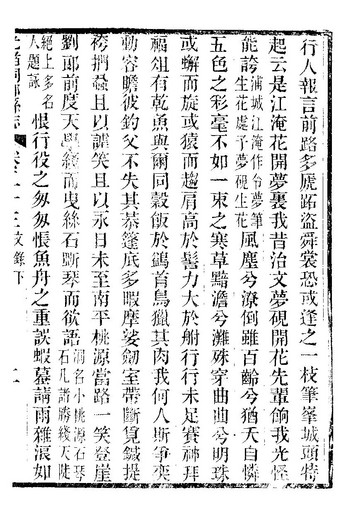 行人報言前路多虓蹈盜舜裳恐或逢之一枝筆峯城頭特
起云是江淹花開夢裏我昔治文夢硯開花先輩餉我光怪
能誇浦城江淹作令夢筆生花處予夢硯生花風塵兮潦倒雖百齡兮猶天自憐
五色之彩毫不如一束之寒草黯澹兮灘殊穿曲曲兮明珠
或蟹而旋或猿而趨肩高於髻力大於船行行未足賽神拜
福俎有乾魚與爾同穀飯於鷁首烏獵其肉我何人斯爭奕
動容瞻彼釣父不失其恭篷底多暇摩娑劒室帶斷覓鍼提
袴捫蝨且以謔笑且以永日未至南平桃源當路一笑登崖
劉郞前度天與緩而曳絲石斷琴而欲語洞名小桃源石几諸勝綫天陡
絕上多名人題詠恨行役之匆匆悵魚舟之重誤蝦蟇請雨雜滾如
卷之二十三 文錄下